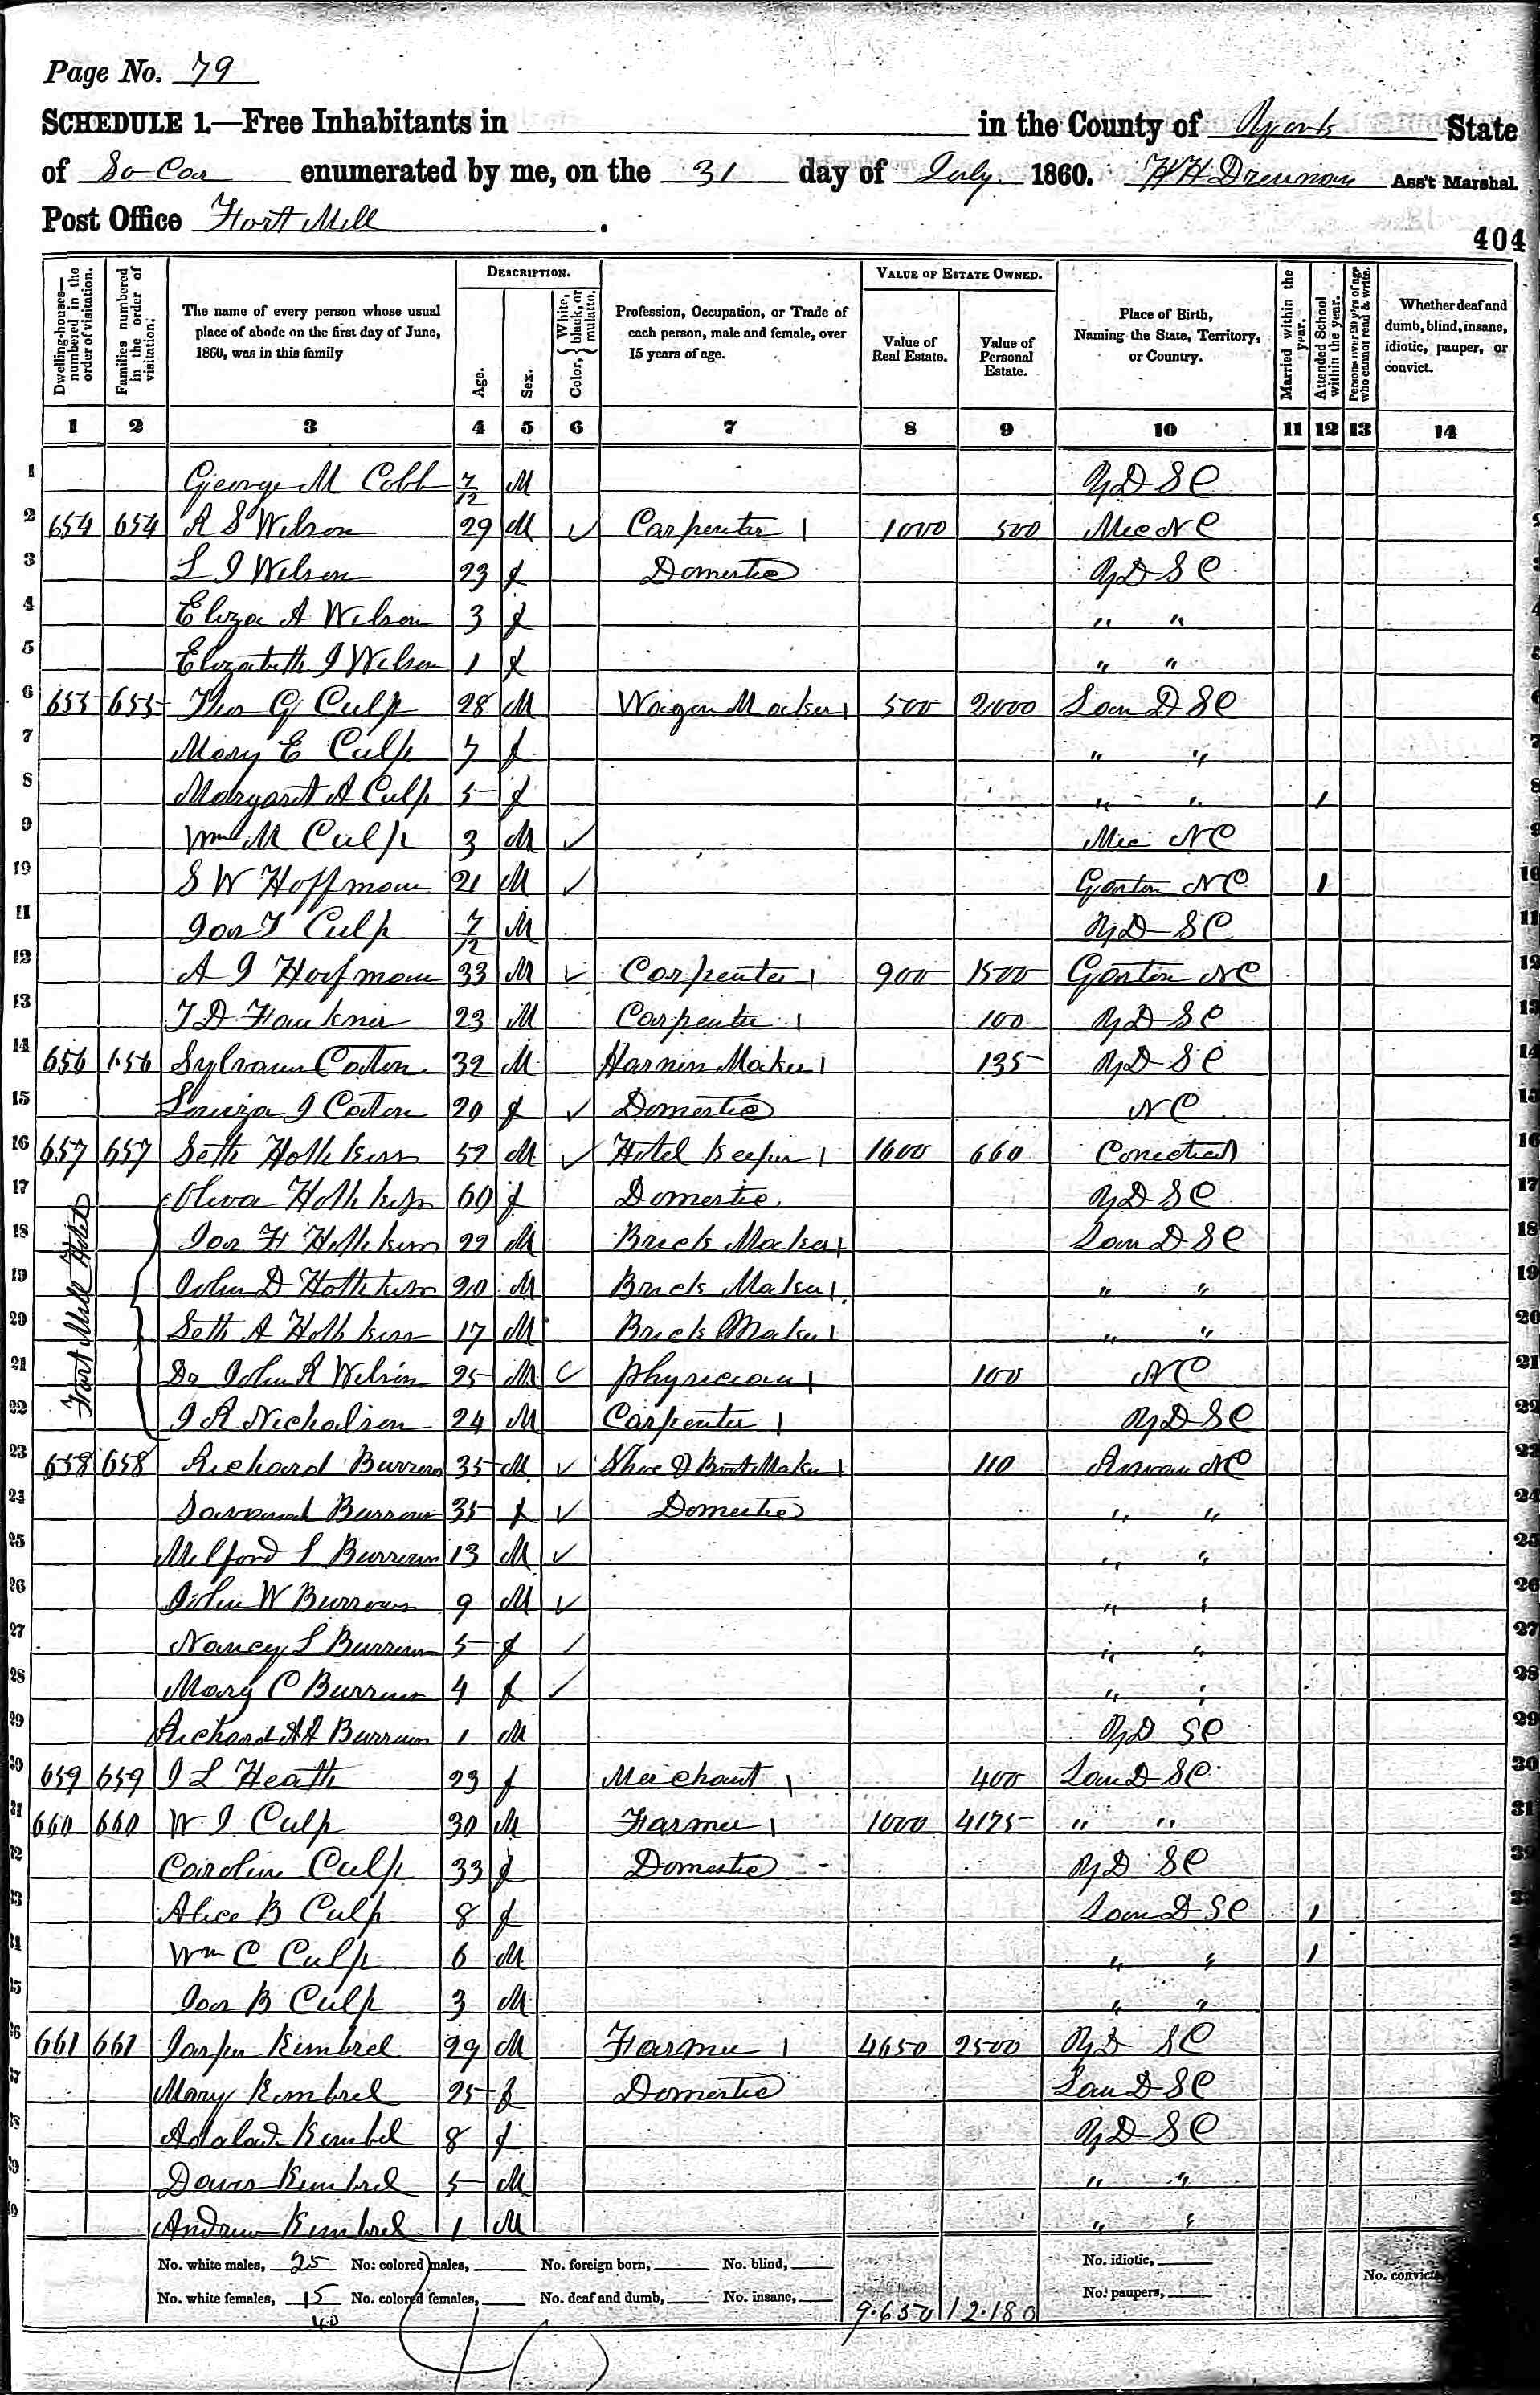 Page No. 79
SCHEDULE 1.—Free Inhabitants in in the County of York State
of So Car enumerated by me, on the 31 day of July 1860. H H Drennan Ass't Marshal.
Post Office Fort Mill .
404
Dwelling-houses—numbered in the order of visitation.
Families numbered in the order of visitation.
The name of every person whose usual place of abode on the first day of June, 1860, was in this family
DESCRIPTION.
Age.
Sex.
Color, White, black, or mulatto.
Profession, Occupation, or Trade of each person, male and female, over 15 years of age.
VALUE OF ESTATE OWNED.
Value of Real Estate.
Value of Personal Estate.
Place of Birth, Naming the State, Territory, or Country.
Married within the year.
Attended School within the year.
Persons over 20 y'rs of age who cannot read & write.
Whether deaf and dumb, blind, insane, idiotic, pauper, or convict.
1 2 3 4 5 6 7 8 9 10 11 12 13 14
1 George M Cobb 7/12 M Y D S C
2 654 654 R S Wilson 29 M ✓ Carpenter 1 1000 500 Mec N C 2
3 L J Wilson 23 f Domestic Y D S C
4 Eliza A Wilson 3 f " "
5 Elizabeth J Wilson 1 f " "
6 655 655 Thos G Culp 28 M Wagon Maker 1 500 2000 Lan D S C
7 Mary E Culp 7 f " " 7
8 Margaret A Culp 5 f " " 1 8
9 Wm M Culp 3 M ✓ Mec N C 9
10 S W Hoffman 21 M ✓ Gaston N C 1 10
11 Jas F Culp 7/12 M Y D S C 11
12 A J Hoffman 33 M ✓ Carpenter 1 900 1500 Gaston N C 12
13 T D Faulkner 23 M Carpenter 1 100 Y D S C 13
14 656 656 Sylvanus Caton 32 M Harness Maker 1 135 Y D S C 14
15 Louiza J Caton 20 f ✓ Domestic N C 15
16 657 657 Seth Hothkiss 52 M ✓ Hotel Keeper 1 1600 660 Conecticut 16
17 Oliva Hothkiss 60 f Domestic Y D S C 17
Fort Mill Hotel
18 Jas H Hothkiss 22 M Brick Maker 1 Lan D S C 18
19 John D Hothkiss 20 M Brick Maker 1 " " 19
20 Seth A Hothkiss 17 M Brick Maker 1 " " 20
21 Dr John R Wilson 25 M ✓ Physician 1 100 N C 21
22 J R Nicholson 24 M Carpenter 1 Y D S C 22
23 658 658 Richard Burrows 35 M ✓ Shoe & Boot Maker 1 110 Rowan N C 23
24 Savanah Burrows 35 f ✓ Domestic " " 24
25 Milford L Burrows 13 M ✓ " " 25
26 John W Burrows 9 M ✓ " " 26
27 Nancy L Burrows 5 f ✓ " " 27
28 Mary C Burrows 4 f ✓ " " 28
29 Richard A Burrows 1 M Y D S C 29
30 659 659 J L Heath 23 f Merchant 1 400 Lan D S C 30
31 660 660 W J Culp 30 M Farmer 1 1000 4175 " " 31
32 Caroline Culp 33 f Domestic Y D S C 32
33 Alice B Culp 8 f Lan D S C 1
34 Wm C Culp 6 M " " 1
35 Jas B Culp 3 M " "
36 661 661 Jasper Kimbrel 29 M Farmer 1 4650 2500 Y D S C
37 Mary Kimbrel 25 f Domestic Lan D S C
38 Adalad Kimbrel 8 f Y D S C
39 Kimbrel 5 M " "
40 Andrew Kimbrel 1 M " "
No. white males, 25 No. colored males, No. foreign born, No. blind, No. idiotic, No. convicts
No. white females, 15 No. colored females, No. deaf and dumb, No. insane, No. paupers,
40 9.650 12.180